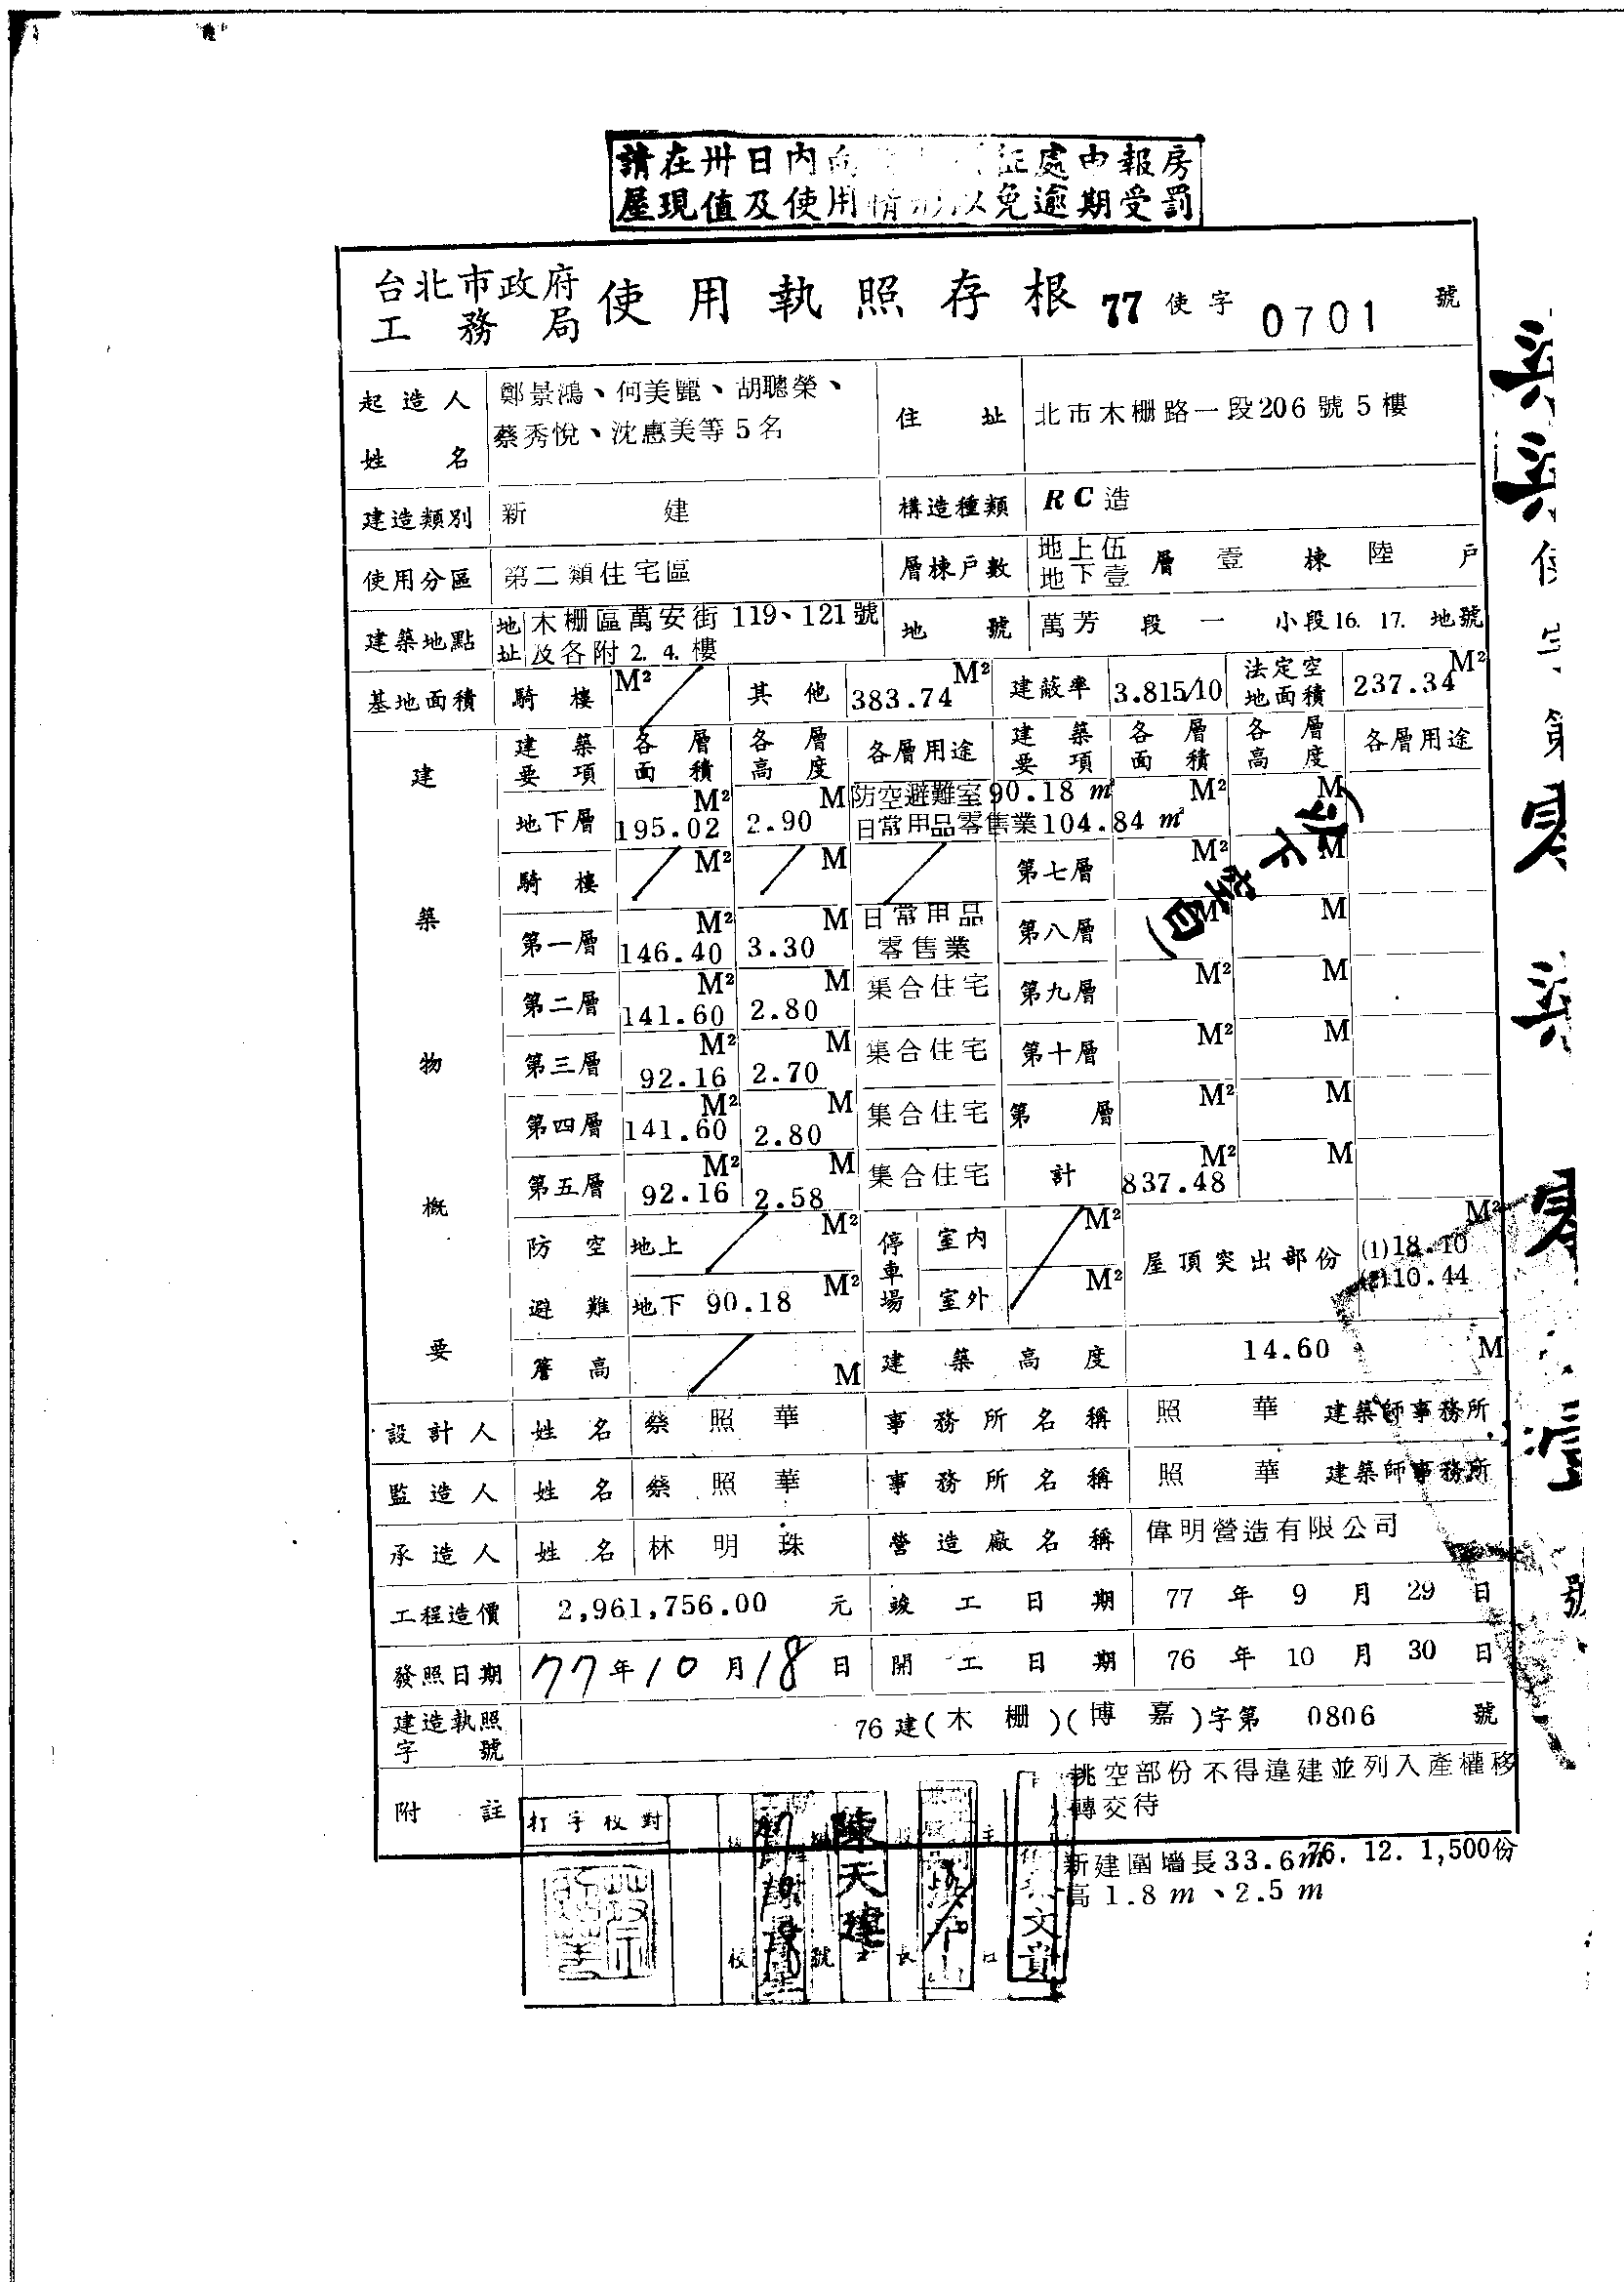 請在卅日內向 處申報房
屋現值及使用情形以免逾期受罰
台北市政府
工務局
使用執照存根 77 使字 0701 號
起造人姓名 鄭景鴻、何美麗、胡聰榮、
蔡秀悅、沈惠美等5名
住址 北市木柵路一段206號5樓
建造類別 新建 構造種類 RC造
使用分區 第二類住宅區 層棟戶數 地上伍 地下壹 層 壹 棟 陸 戶
建築地點 地址 木柵區萬安街119、121號
及各附2.4.樓
地號 萬芳段一小段16.17.地號
基地面積 騎樓 M² 其他 383.74 M² 建蔽率 3.815/10 法定空地面積 237.34 M²
建築物概要
建築要項 各層面積 各層高度 各層用途 建築要項 各層面積 各層高度 各層用途
地下層 195.02 M² 2.90 M 防空避難室90.18㎡ M² M
日常用品零售業104.84㎡
騎樓 M² M 第七層 M² M
(以下空白)
第一層 146.40 M² 3.30 M 日常用品零售業 第八層 M² M
第二層 141.60 M² 2.80 M 集合住宅 第九層 M² M
第三層 92.16 M² 2.70 M 集合住宅 第十層 M² M
第四層 141.60 M² 2.80 M 集合住宅 第 層 M² M
第五層 92.16 M² 2.58 M 集合住宅 計 837.48 M² M
防空避難 地上 M² 停車場 室內 M² 屋頂突出部份 (1)18.10 M²
地下 90.18 M² 室外 M² (2)10.44
簷高 M 建築高度 14.60 M
設計人 姓名 蔡照華 事務所名稱 照華 建築師事務所
監造人 姓名 蔡照華 事務所名稱 照華 建築師事務所
承造人 姓名 林明珠 營造廠名稱 偉明營造有限公司
工程造價 2,961,756.00 元 竣工日期 77年9月29日
發照日期 77年10月18日 開工日期 76年10月30日
建造執照字號 76建(木柵)(博嘉)字第 0806 號
附註 挑空部份不得違建並列入產權移
轉交待
新建圍墻長33.6m
高1.8m、2.5m
76.12.1,500份
打字校對
陳天建